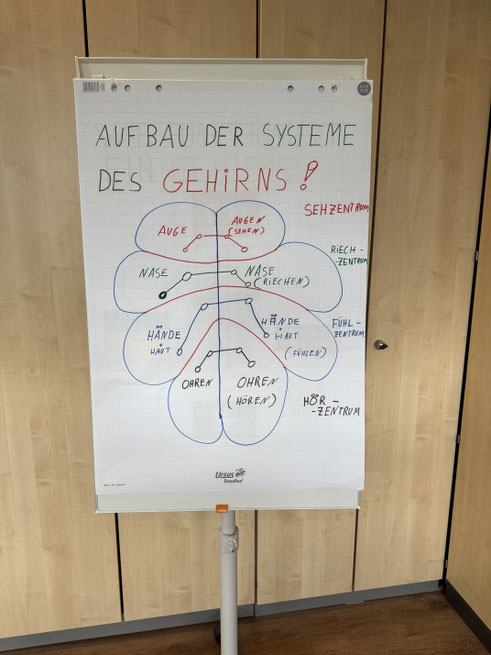 AUFBAU DER SYSTEME
DES GEHiRNS !
SEHZENTRUM
AUGE
AUGEN
(SEHEN)
RiECH-
-ZENTRUM
NASE
NASE
(RiECHEN)
HÄNDE
+ HAUT
HÄNDE
+ HAUT
(FÜHLEN)
FÜHL-
-ZENTRUM
OHREN
OHREN
(HÖREN)
HÖR-
-ZENTRUM
URSUS